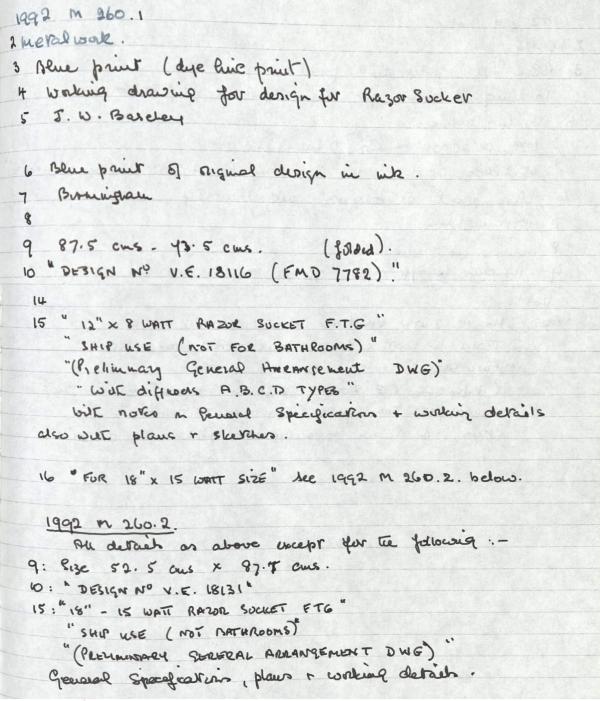 1992 M 260.1
2 Metalwork.
3 Blue print (dye line print)
4 Working drawing for design for Razor Sucker
5 J. W. Barcley
6 Blue print of original design in ink.
7 Birmingham
8
9 87.5 cms - 43.5 cms. (folded).
10 "DESIGN No V.E. 18116 (FMD 7782)."
14
15 "12" x 8 WATT RAZOR SOCKET F.T.G"
"SHIP USE (NOT FOR BATHROOMS)"
"(Preliminary General Arrangement DWG)"
"with diffusers A.B.C.D TYPES"
with notes on General Specifications + working details
also with plans + sketches.
16 "FOR 18" x 15 WATT SIZE" see 1992 M 260.2. below.
1992 M 260.2.
All details as above except for the following :-
9: Size 52.5 cms x 87.5 cms.
10: "DESIGN No V.E. 18131"
15: "18" - 15 WATT RAZOR SOCKET FTG"
"SHIP USE (NOT BATHROOMS)"
"(PRELIMINARY GENERAL ARRANGEMENT DWG)"
General Specifications, plans + working details.